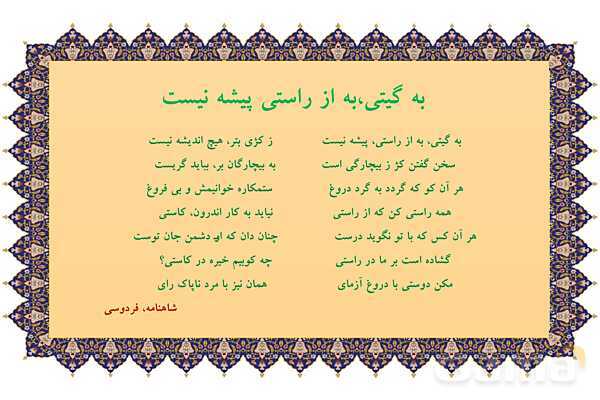 به گیتی،به از راستی پیشه نیست
به گیتی، به از راستی، پیشه نیست ز کژی بتر، هیچ اندیشه نیست
سخن گفتن کژ ز بیچارگی است به بیچارگان بر، بباید گریست
هر آن کو که گردد به گرد دروغ ستمکاره خوانیمش و بی فروغ
همه راستی کن که از راستی نیاید به کار اندرون، کاستی
هر آن کس که با تو نگوید درست چنان دان که او دشمن جان توست
گشاده است بر ما در راستی چه کوبیم خیره در کاستی؟
مکن دوستی با دروغ آزمای همان نیز با مرد ناپاک رای
شاهنامه، فردوسی